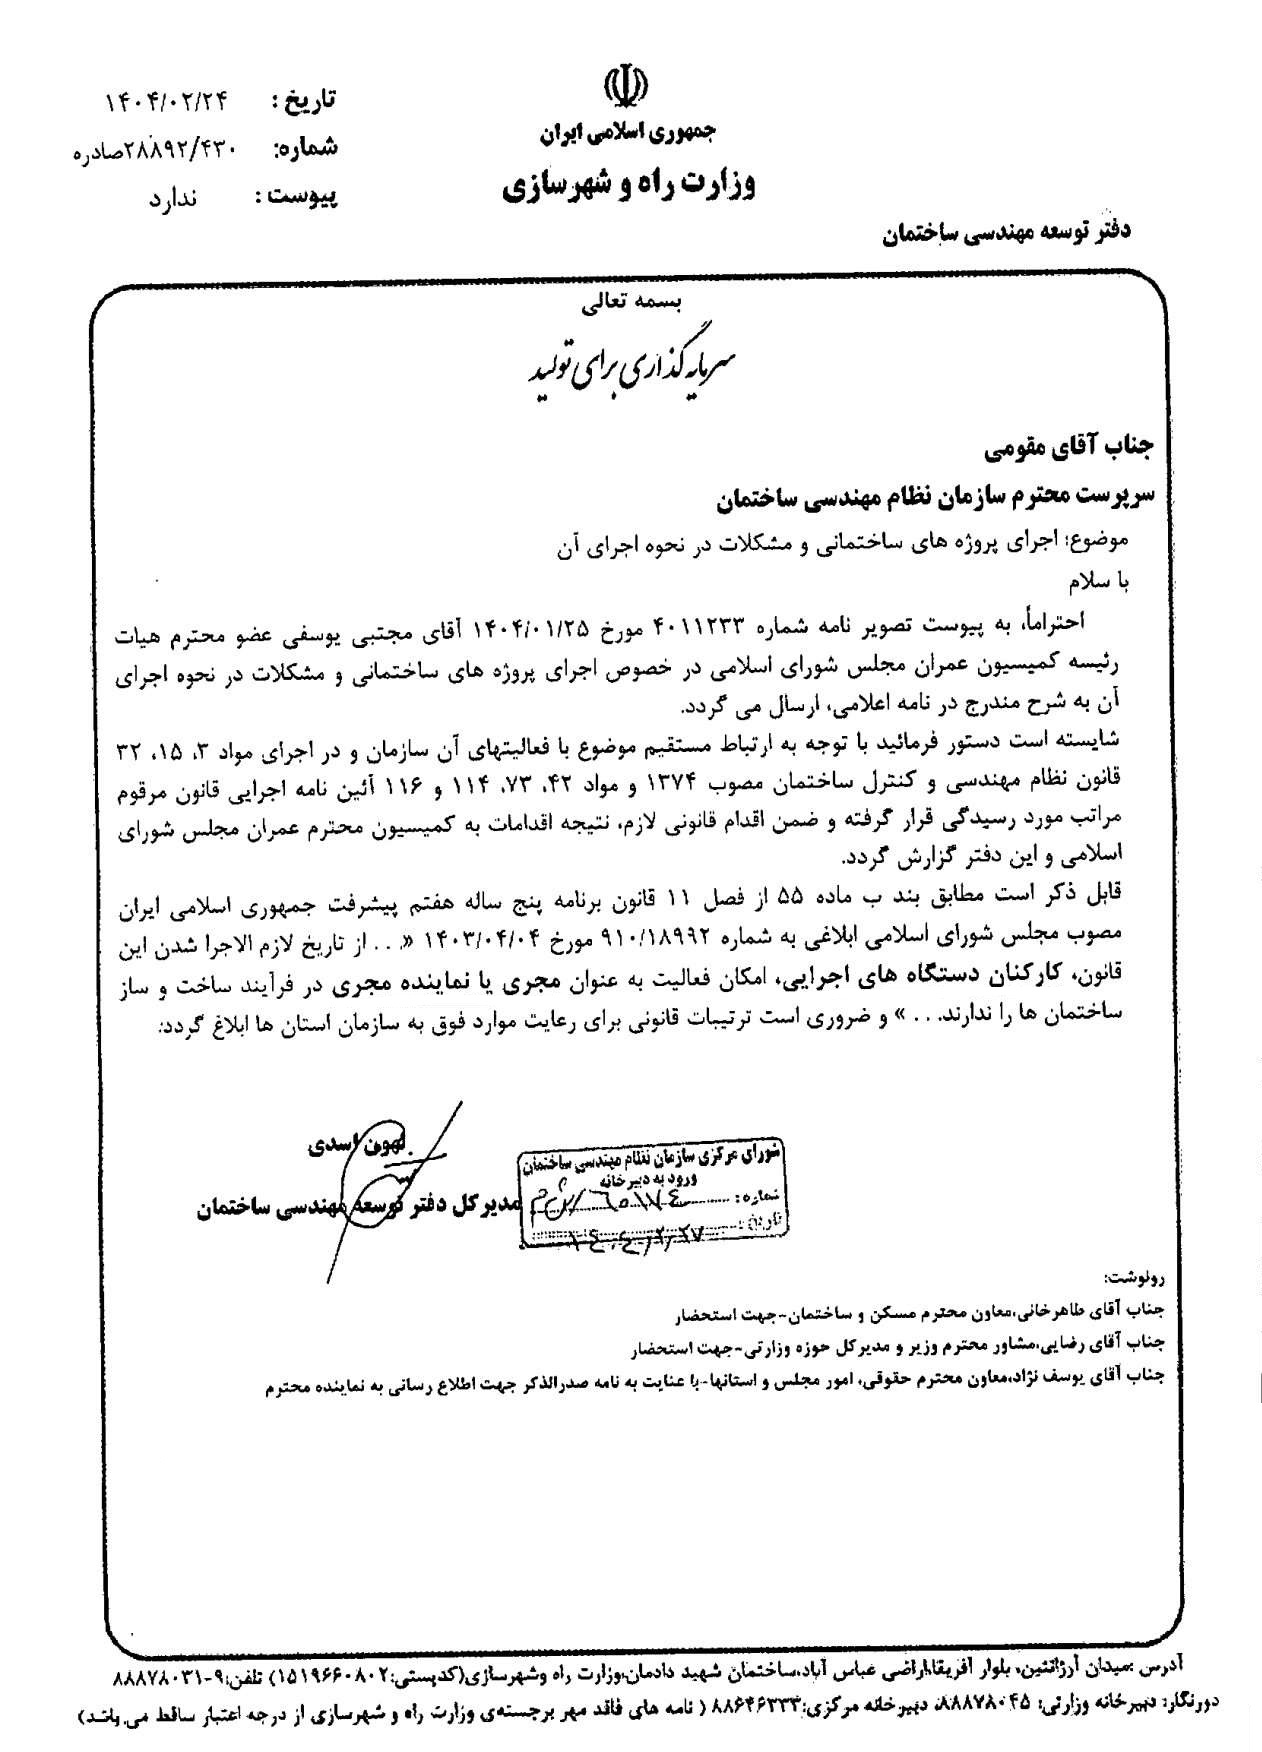 جمهوری اسلامی ایران
وزارت راه و شهرسازی
دفتر توسعه مهندسی ساختمان
تاریخ : ۱۴۰۴/۰۲/۲۴
شماره: ۲۸۸۹۲/۴۳۰صادره
پیوست : ندارد
بسمه تعالی
سرمایه گذاری برای تولید
جناب آقای مقومی
سرپرست محترم سازمان نظام مهندسی ساختمان
موضوع: اجرای پروژه های ساختمانی و مشکلات در نحوه اجرای آن
با سلام
احتراماً، به پیوست تصویر نامه شماره ۴۰۱۱۲۳۳ مورخ ۱۴۰۴/۰۱/۲۵ آقای مجتبی یوسفی عضو محترم هیات
رئیسه کمیسیون عمران مجلس شورای اسلامی در خصوص اجرای پروژه های ساختمانی و مشکلات در نحوه اجرای
آن به شرح مندرج در نامه اعلامی، ارسال می گردد.
شایسته است دستور فرمائید با توجه به ارتباط مستقیم موضوع با فعالیتهای آن سازمان و در اجرای مواد ۳، ۱۵، ۳۲
قانون نظام مهندسی و کنترل ساختمان مصوب ۱۳۷۴ و مواد ۴۲، ۷۳، ۱۱۴ و ۱۱۶ آئین نامه اجرایی قانون مرقوم
مراتب مورد رسیدگی قرار گرفته و ضمن اقدام قانونی لازم، نتیجه اقدامات به کمیسیون محترم عمران مجلس شورای
اسلامی و این دفتر گزارش گردد.
قابل ذکر است مطابق بند ب ماده ۵۵ از فصل ۱۱ قانون برنامه پنج ساله هفتم پیشرفت جمهوری اسلامی ایران
مصوب مجلس شورای اسلامی ابلاغی به شماره ۹۱۰/۱۸۹۹۲ مورخ ۱۴۰۳/۰۴/۰۴ «... از تاریخ لازم الاجرا شدن این
قانون، کارکنان دستگاه های اجرایی، امکان فعالیت به عنوان مجری یا نماینده مجری در فرآیند ساخت و ساز
ساختمان ها را ندارند... » و ضروری است ترتیبات قانونی برای رعایت موارد فوق به سازمان استان ها ابلاغ گردد.
اسدی
مدیر کل دفتر توسعه مهندسی ساختمان
شورای مرکزی سازمان نظام مهندسی ساختمان
ورود به دبیرخانه
شماره:
تاریخ: ۱۴۰۴/۲/۲۷
رونوشت:
جناب آقای طاهرخانی،معاون محترم مسکن و ساختمان-جهت استحضار
جناب آقای رضایی،مشاور محترم وزیر و مدیرکل حوزه وزارتی-جهت استحضار
جناب آقای یوسف نژاد،معاون محترم حقوقی، امور مجلس و استانها-با عنایت به نامه صدرالذکر جهت اطلاع رسانی به نماینده محترم
آدرس :میدان آرژانتین، بلوار آفریقا،اراضی عباس آباد،ساختمان شهید دادمان،وزارت راه وشهرسازی(کدپستی:۱۵۱۹۶۶۰۸۰۲) تلفن:۹-۸۸۸۷۸۰۳۱
دورنگار: دبیرخانه وزارتی: ۸۸۸۷۸۰۴۵، دبیرخانه مرکزی:۸۸۶۴۶۳۳۳ ( نامه های فاقد مهر برجسته‌ی وزارت راه و شهرسازی از درجه اعتبار ساقط می باشد)